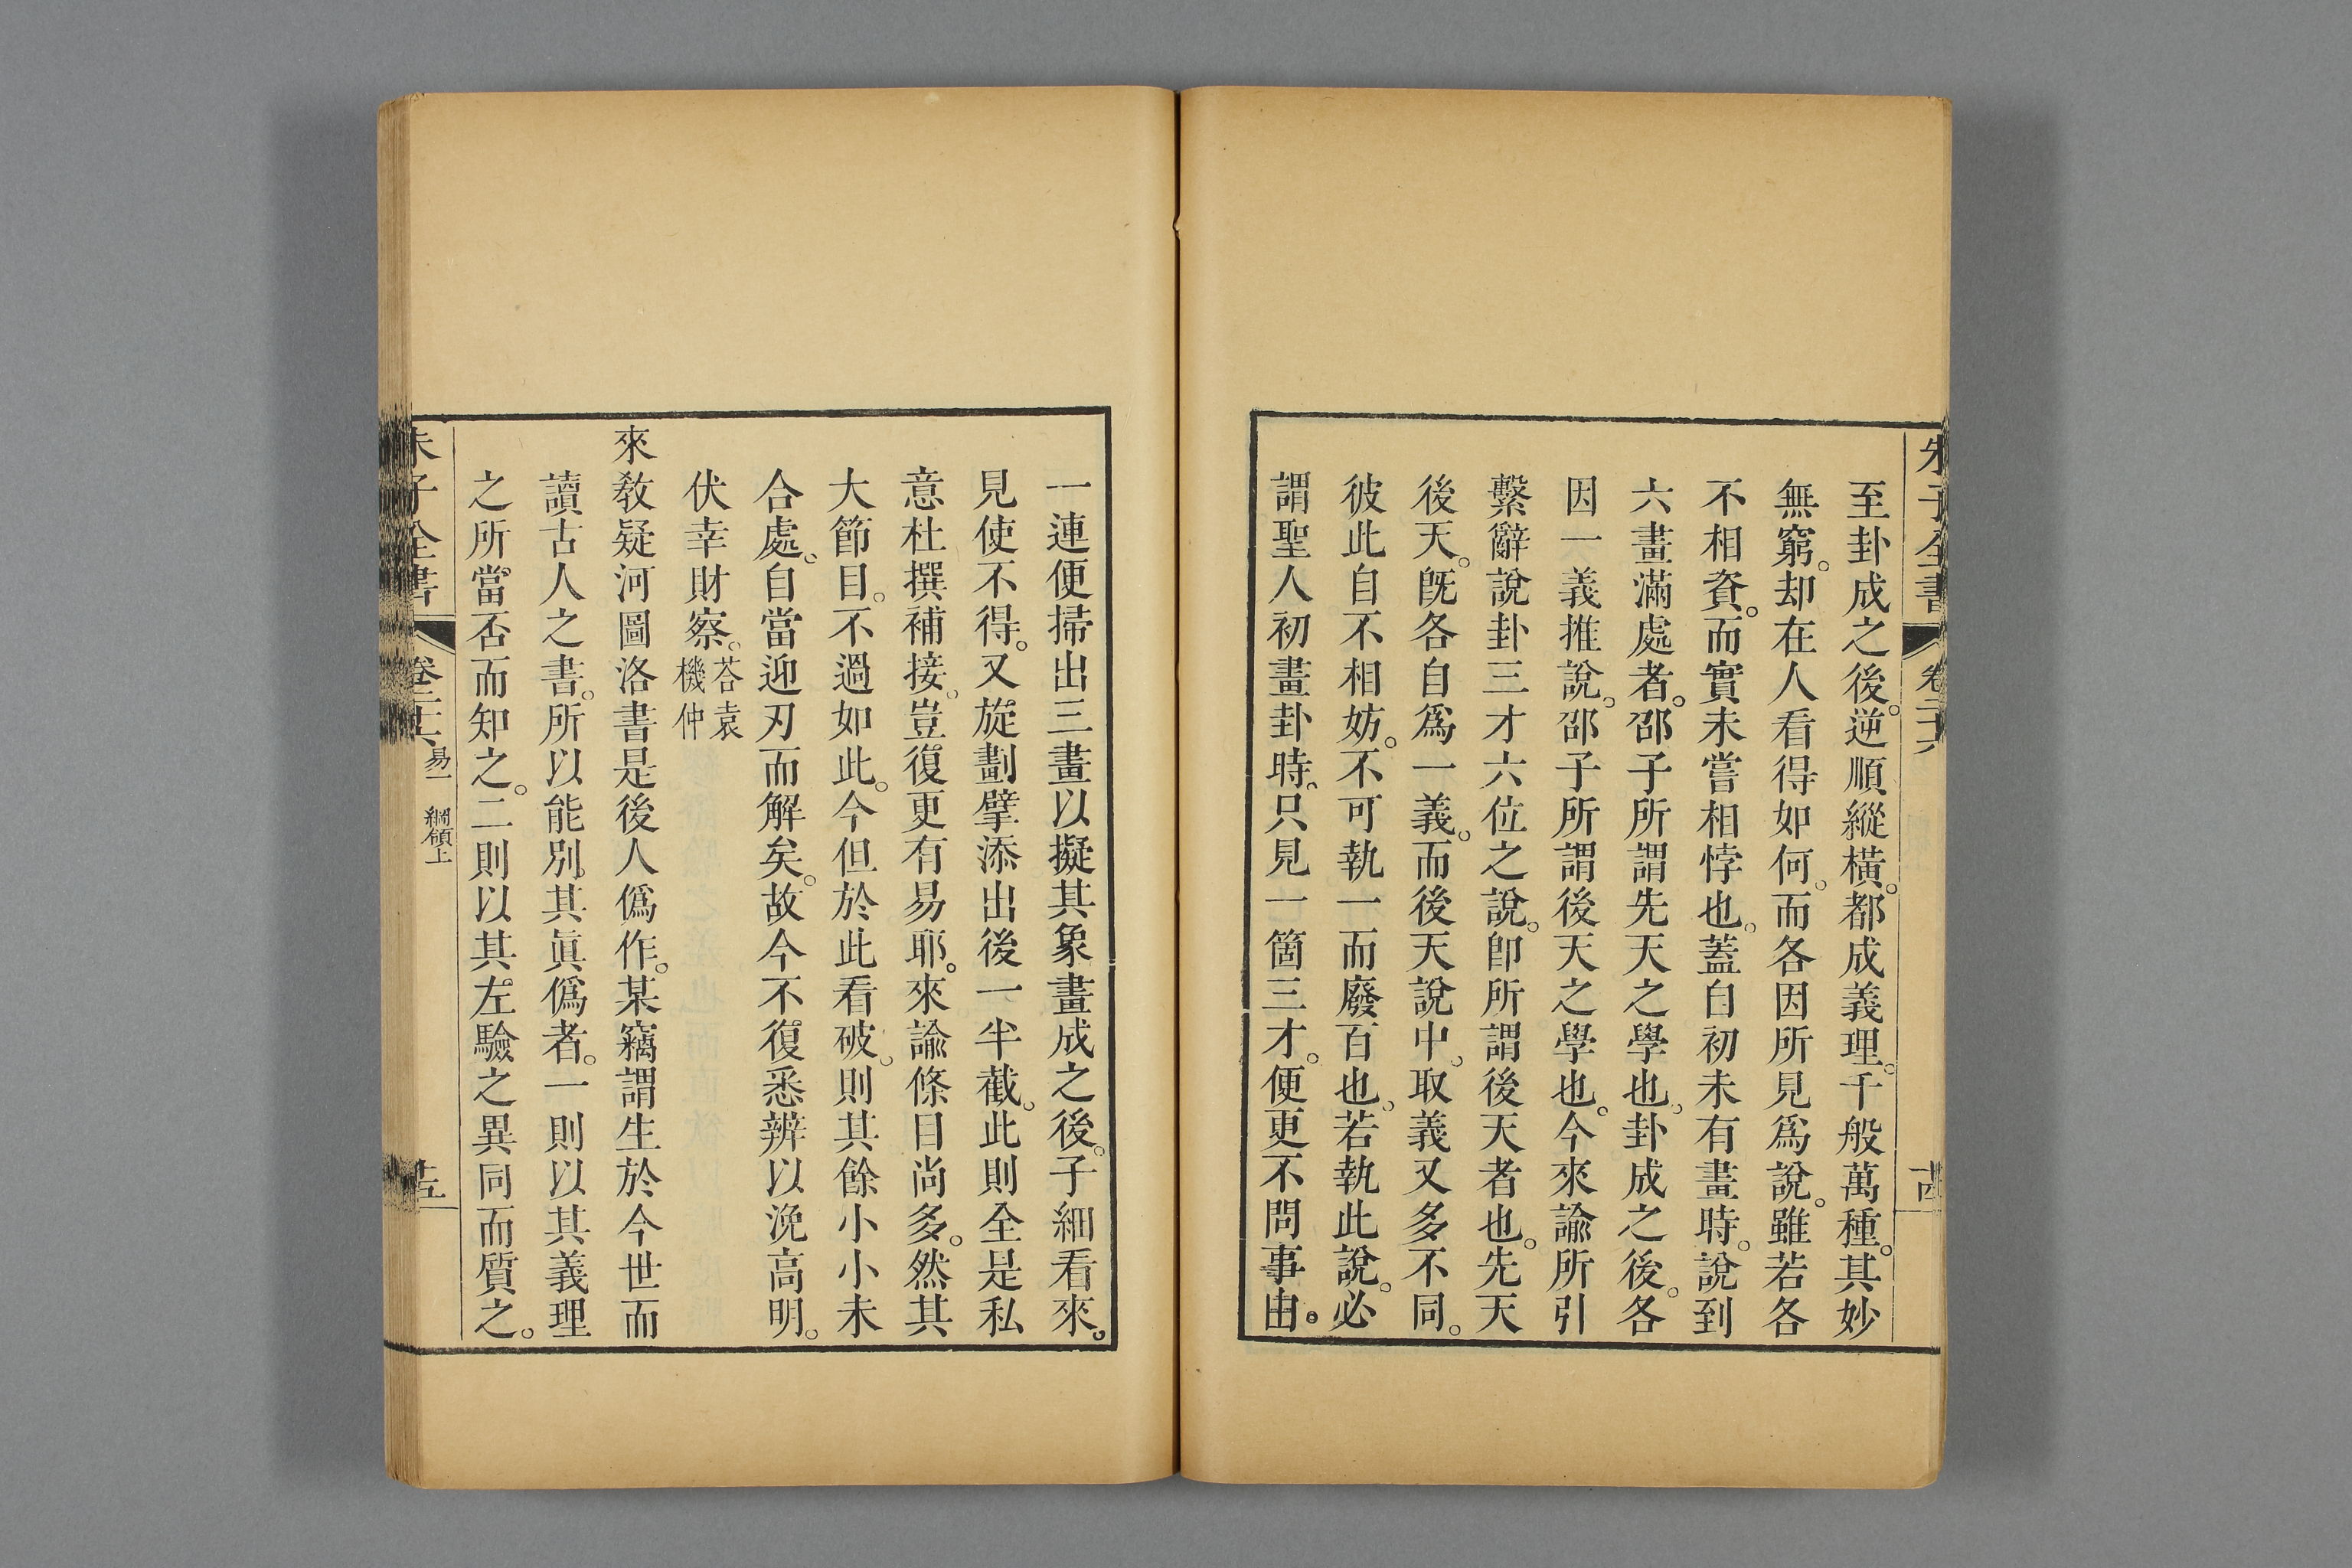 朱子全書 卷二十六 十四
至卦成之後。逆順縱橫。都成義理。千般萬種。其妙
無窮。却在人看得如何。而各因所見爲說。雖若各
不相資。而實未嘗相悖也。蓋自初未有畫時。說到
六畫滿處者。邵子所謂先天之學也。卦成之後。各
因一義推說。邵子所謂後天之學也。今來諭所引
繫辭說卦三才六位之說。卽所謂後天者也。先天
後天。旣各自爲一義。而後天說中。取義又多不同。
彼此自不相妨。不可執一而廢百也。若執此說。必
謂聖人初畫卦時。只見一箇三才。便更不問事由。
一連便掃出三畫以擬其象畫成之後。子細看來。
見使不得。又旋劃擘添出後一半截。此則全是私
意杜撰補接。豈復更有易耶。來諭條目尚多。然其
大節目。不過如此。今但於此看破。則其餘小小未
合處。自當迎刃而解矣。故今不復悉辨以浼高明。
伏幸財察。荅袁機仲
來敎疑河圖洛書是後人僞作。某竊謂生於今世而
讀古人之書。所以能別其眞僞者。一則以其義理
之所當否而知之。二則以其左驗之異同而質之。
朱子全書 卷二十六 易一 綱領上 十五